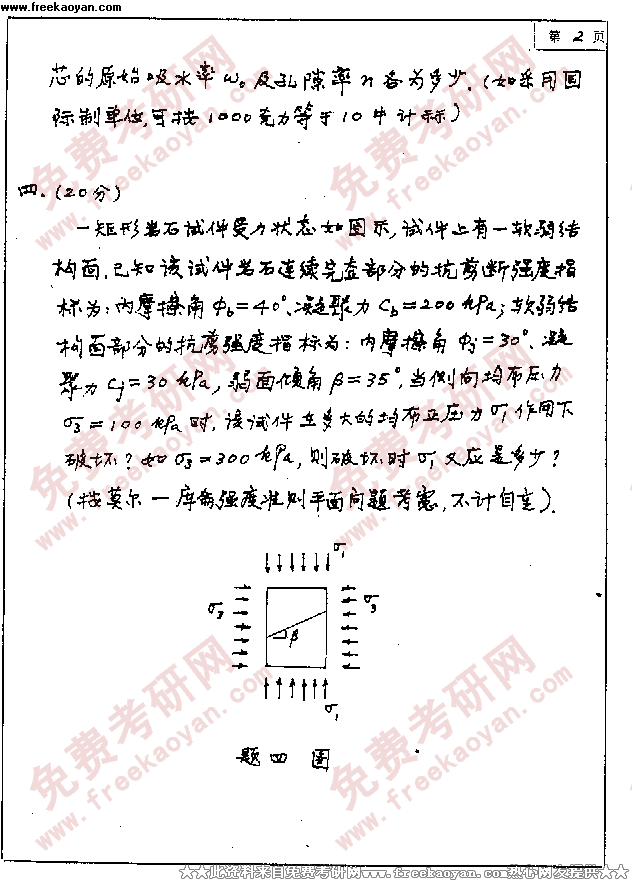 www.freekaoyan.com
第 2 页
芯的原始吸水率 ω₀ 及孔隙率 n 各为多少.(如采用国
际制单位,可按 1000 克力等于 10 牛计标)
四.(20分)
一矩形岩石试件受力状态如图示,试件上有一软弱结
构面,已知该试件岩石连续完整部分的抗剪断强度指
标为:内摩擦角 Φb=40°、凝聚力 Cb=200 kPa;软弱结
构面部分的抗剪强度指标为:内摩擦角 Φj=30°、凝
聚力 Cj=30 kPa,弱面倾角 β=35°,当侧向均布压力
σ₃=100 kPa 时,该试件在多大的均布正压力 σ₁ 作用下
破坏?如 σ₃=300 kPa,则破坏时 σ₁ 又应是多少?
(按莫尔—库伦强度准则平面问题考虑,不计自重).
σ₁
σ₃
σ₃
β
σ₁
题四 图
免费考研网
www.freekaoyan.com
★★此资料来自免费考研网www.freekaoyan.com热心网友提供★★